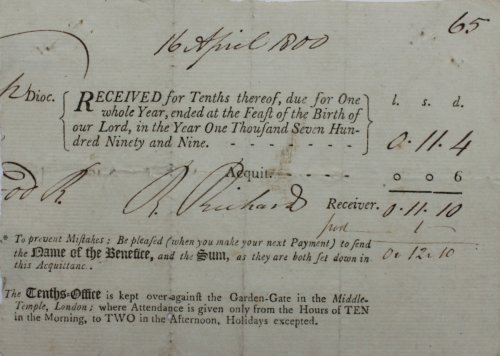 65
16 April 1800
Dioc. RECEIVED for Tenths thereof, due for One l. s. d.
whole Year, ended at the Feast of the Birth of
our Lord, in the Year One Thousand Seven Hun-
dred Ninety and Nine. - - - - - - 0. 11. 4
Acquit. - - - - 0 0 6
R. Richards Receiver. 0. 11. 10
1
* To prevent Mistakes; Be pleased (when you make your next Payment) to send 0. 12. 10
the Name of the Benefice, and the Sum, as they are both set down in
this Acquittanc.
The Tenths-Office is kept over-against the Garden-Gate in the Middle-
Temple, London; where Attendance is given only from the Hours of TEN
in the Morning, to TWO in the Afternoon, Holidays excepted.